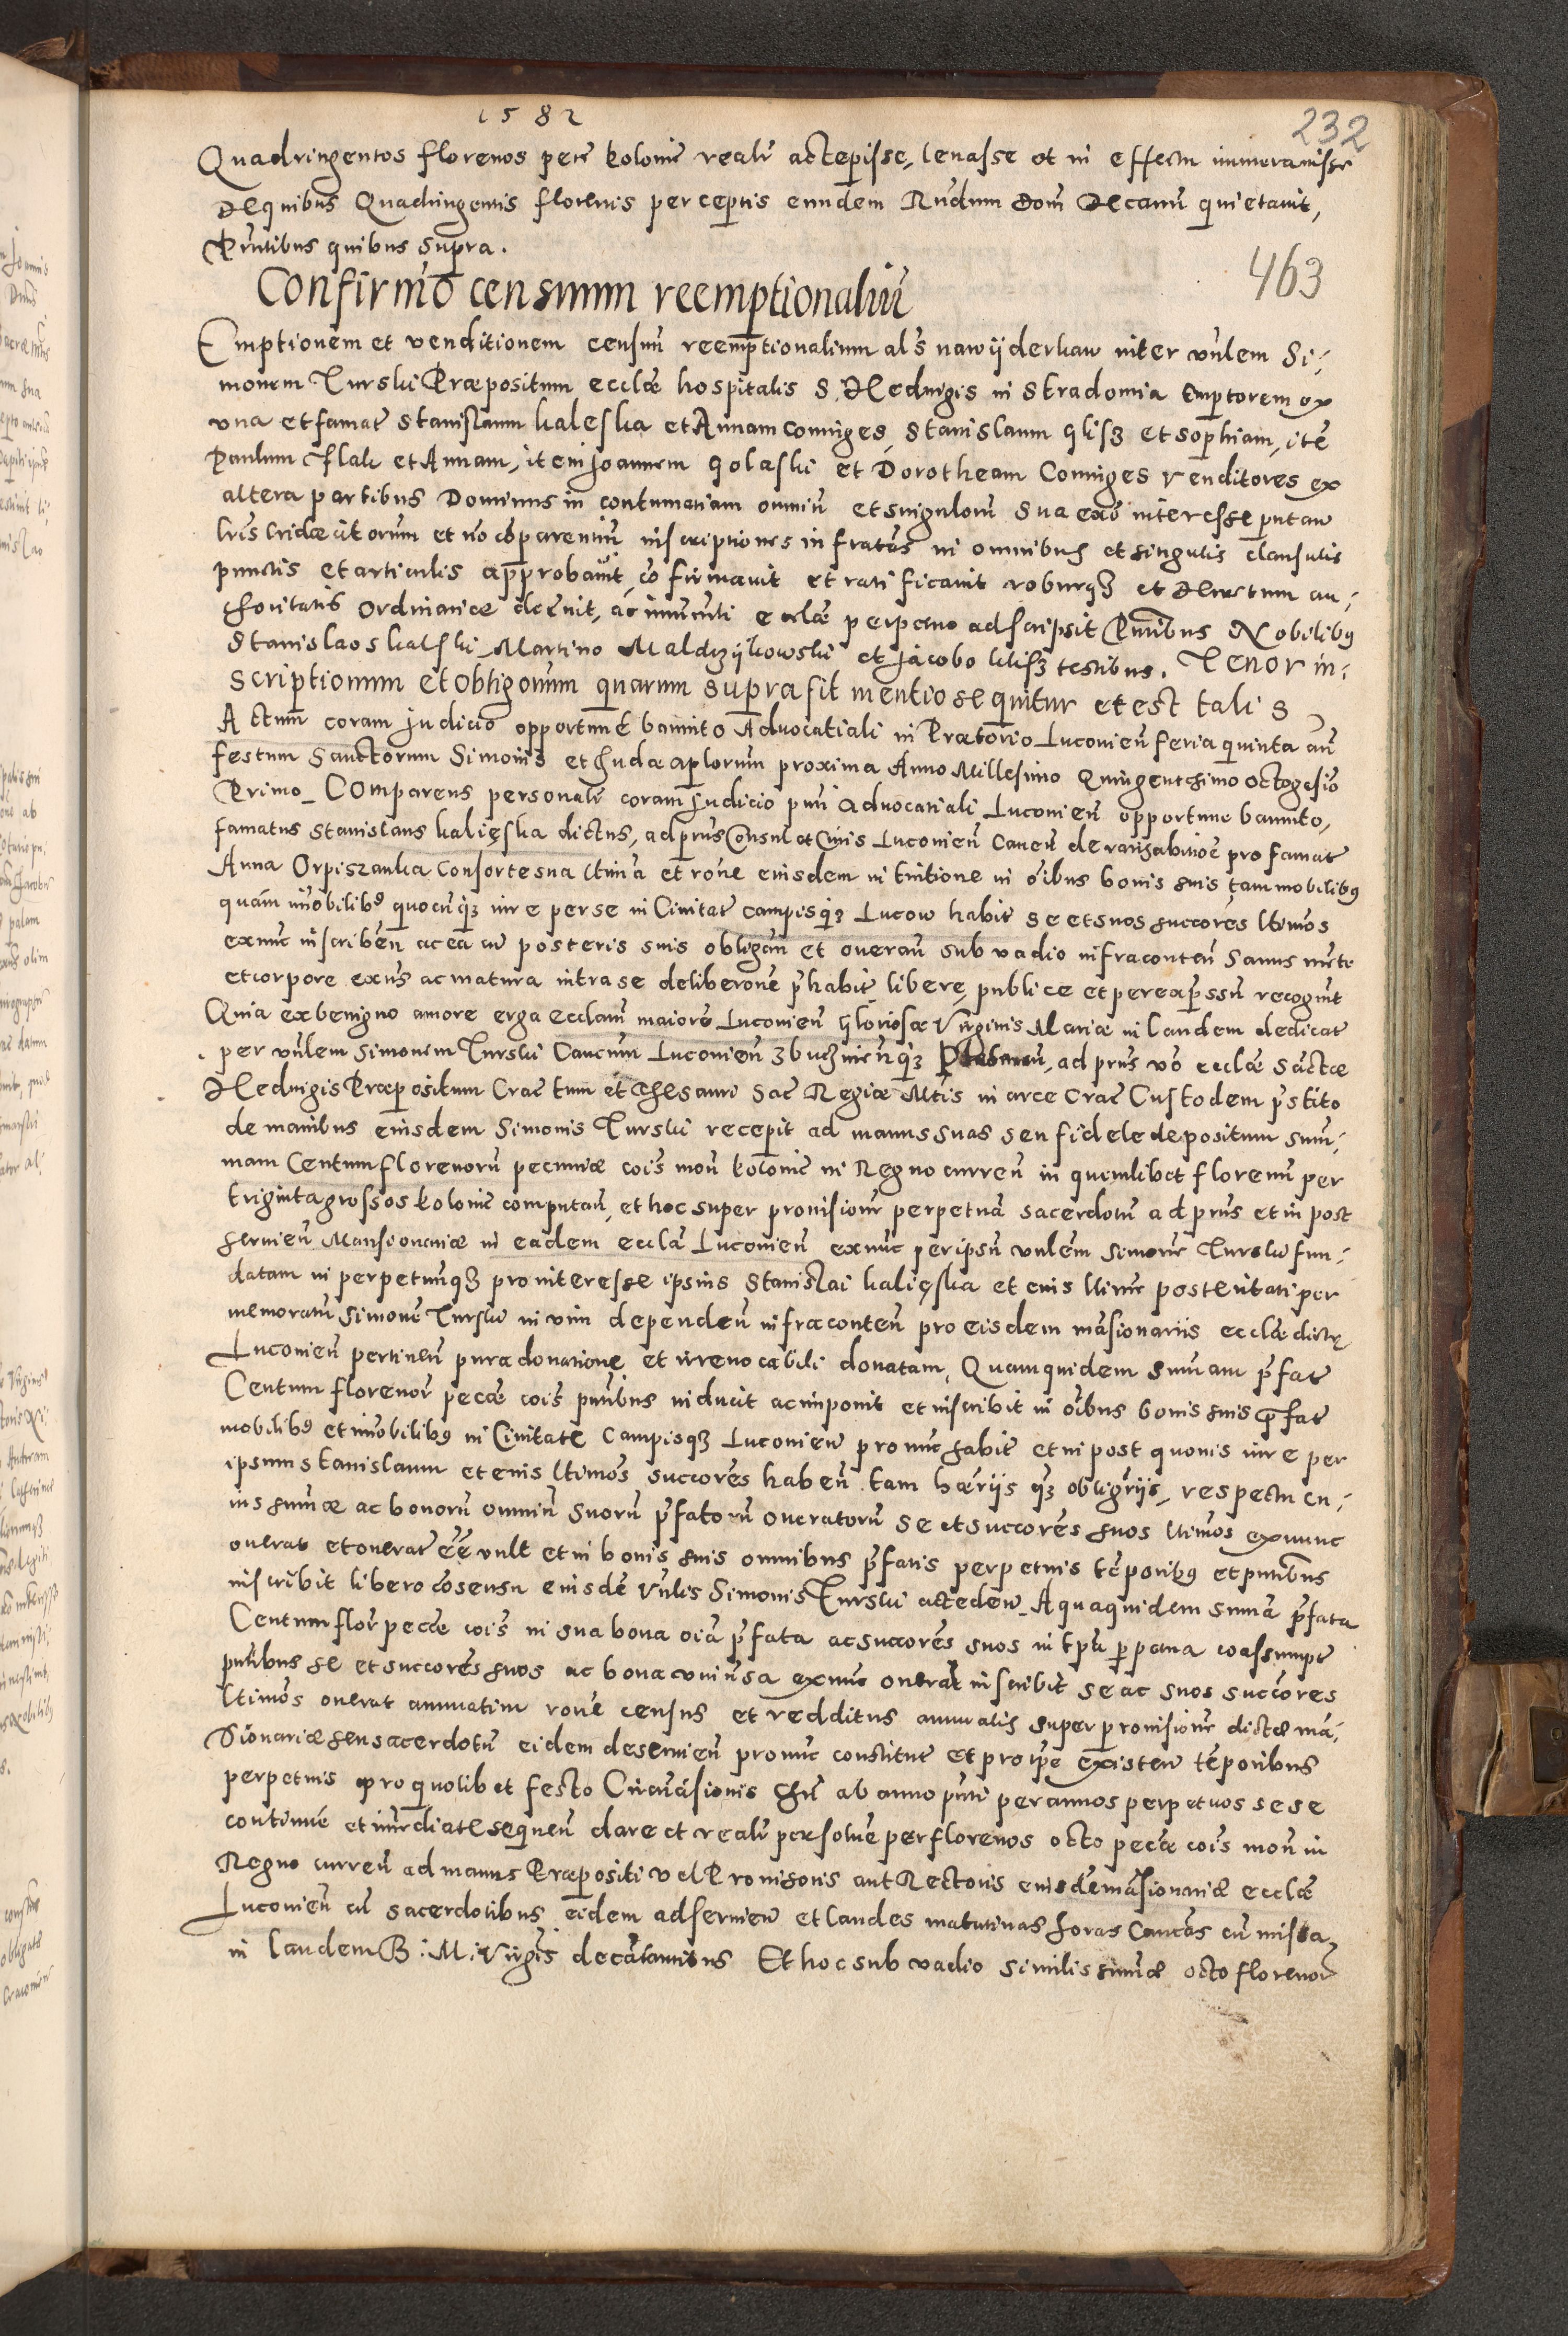 1582
232
Quadringentos florenos pecū Poloniē realē accepisse, levasse et in effectu numeravisse
De quibus Quadringentis florenis perceptis eundem Rndum Dom̄ Decanū quietavit,
Pn̄tibus quibus supra.
463
Confirmō censuum reemptionaliū
Emptionem et venditionem censuū reemptionalium als na wyderkaw inter vnlem Si-
monem Turski Præpositum ecclæ hospitalis S. Hedvigis in Stradomia Emptorem ex
vna et famat Stanislaum kaleska et Annam Coniuges, Stanislaum glisz et Sophiam, itē
Paulum flak et Annam, item Joannem golaski et Dorotheam Coniuges venditores ex
altera partibus Dominus in contumaciam omniū et singulorū sua exō interesse putan
lris cridæ citorum et nō cōparentiū inscriptiones infratas in omnibus et singulis clausulis
punctis et articulis approbavit, cōfirmavit et ratificavit roburqȝ et Decretum au-
thoritatis Ordinariæ adiecit, ac immuniti ecclæ perpetuo adscripsit Pn̄tibus Nobilibus
Stanislao skalski Martino Maldrzykowski et Jacobo kilisz testibus. Tenor in-
scriptionum et obligonum quarum supra fit mentio sequitur et est talis
Actum coram Judicio opportune bannito Advocatiali in Prætorio Luconien feria quinta an̄
festum Sanctorum Simonis et Judæ aplorum proxima Anno Millesimo Quingentesimo octogesio
Primo. Comparens personalr coram Judicio pn̄ti advocatiali Luconien opportune bannito,
famatus Stanislaus kalięska dictus, ad pn̄s Consul et Civis Luconien Caven de rathabitioē pro famat
Anna Orpiszanka Consorte sua ltima et rone eiusdem in tuitione in oibus bonis suis tam mobilibus
quam im̄obilibus quocunqȝ iure per se in Civitat campisqȝ Lucow habit se et suos succores ltimos
exnunc inscriben ac ea cū posteris suis obligan et oneran sub vadio infraconten Sanus mente
et corpore exn̄s ac matura intra se deliberone prhabit libere, publice et per expressū recognit
Quia ex benigno amore erga ecclam maiorē Luconien gloriosæ Virginis Mariæ in laudem dedicat
per vnlem Simonem Turski Canonicum Luconien Zbuczinenqȝ Plebanū, ad pn̄s vō ecclæ Sanctæ
Hedvigis Præpositum Crac tum et Thesauri Sac Regiæ Mtis in arce Crac Custodem prstito
de manibus eiusdem Simonis Turski recepit ad manus suas seu fidele depositum sum-
mam Centum florenorū pecuniæ cois mon Polonic in Regno curren in quemlibet florenū per
triginta grossos Polonic computan, et hoc super provisione perpetua sacerdotū ad pn̄s et in post
servien Mansionariæ in eadem eccla Luconien exnunc per ipsū vnlem Simonē Turski fun-
datam in perpetuūqȝ pro interesse ipsius Stanislai kalięska et eius ltimæ posteritati per
memoratū Simonē Turski in vim dependen infraconten pro eisdem māsionariis ecclæ dictæ
Luconien pertinen pura donatione et irrevocabili donatam, Quamquidem summam prfat
Centum florenorū pecæ cois pn̄tibus inducit ac imponit et inscribit in oibus bonis suis prfat
mobilibus et im̄obilibus in Civitate Campisqȝ Luconien pro nunc habit et in post quovis iure per
ipsum Stanislaum et eius ltimos succores haben tam hæriis qȝ obligriis, respectu cu-
ius summæ ac bonorū omniū suorū prfatorū oneratorū se et succores suos ltimos exnunc
onerat et onerat eē vult et in bonis suis omnibus prfatis perpetuis tēporibus et pn̄tibus
inscribit libero cōsensu eiusdē vnlis Simonis Turski acceden. A quaquidem summa prfata
Centum flor pecæ cois in sua bona oia prfata ac succores suos in tpa ppetua coassumpt
pn̄tibus se et succores suos ac bona vniversa exnunc onerat inscribit se ac suos succores
ltimos onerat annuatim rone census et redditus annualis super provisione dictæ mā-
sionariæ seu sacerdotū eidem deservien pro nunc constitut et pro tpe existen tēporibus
perpetuis pro quolibet festo Circūcisionis Chri ab anno pn̄ti per annos perpetuos sese
continue et im̄ediate sequen dare et realr persolvē per florenos octo pecæ cois mon in
Regno curren ad manus Præpositi vel Provisoris aut Rectoris eiusdē māsionariæ ecclæ
Luconien cū sacerdotibus eidem adservien et laudes matutinas horas Cancās cū missa
in laudem B: M: Virgis decātantibus Et hoc sub vadio similis summæ octo florenorū